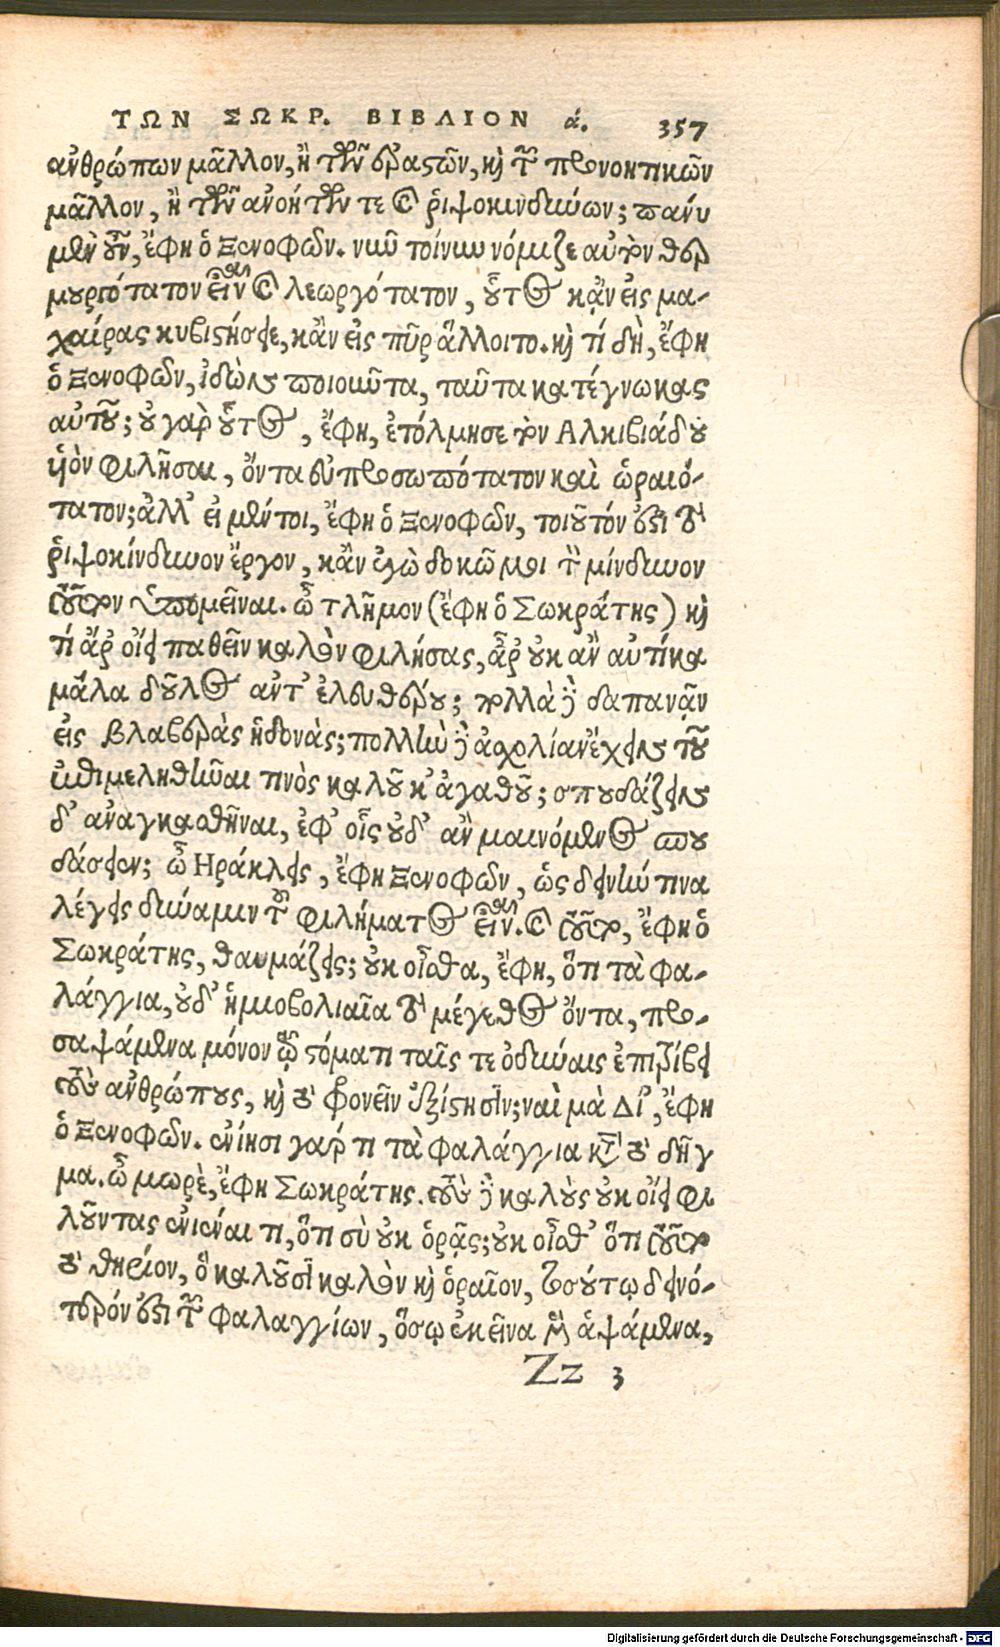 ΤΩΝ ΣΩΚΡ. ΒΙΒΛΙΟΝ ά. 357
ἀνθρώπων μᾶλλον, ἢ τῶν θρασέων, καὶ τῶν προνοητικῶν
μᾶλλον, ἢ τῶν ἀνοήτων τε καὶ ῥιψοκινδύνων; πάνυ
μὲν οὖν, ἔφη ὁ Ξενοφῶν. νῦν τοίνυν νόμιζε αὐτὸν θερ
μουργότατον εἶναι καὶ λεωργότατον, οὗτος κἂν εἰς μα-
χαίρας κυβιστήσειε, κἂν εἰς πῦρ ἅλλοιτο. καὶ τί δὴ, ἔφη
ὁ Ξενοφῶν, ἰδὼν ποιοῦντα, ταῦτα κατέγνωκας
αὐτοῦ; οὐ γὰρ οὗτος, ἔφη, ἐτόλμησε τὸν Αλκιβιάδου
ὑὸν φιλῆσαι, ὄντα εὐπροσωπότατον καὶ ὡραιό-
τατον; ἀλλ' εἰ μέντοι, ἔφη ὁ Ξενοφῶν, τοιοῦτόν ἐστι τὸ
ῥιψοκίνδυνον ἔργον, κἂν ἐγὼ δοκῶ μοι τὸν κίνδυνον
τοῦτον ὑπομεῖναι. ὦ τλῆμον (ἔφη ὁ Σωκράτης) καὶ
τί ἂν οἴει παθεῖν καλὸν φιλήσας, ἆρ' οὐκ ἂν αὐτίκα
μάλα δοῦλος ἀντ' ἐλευθέρου; πολλὰ δὲ δαπανᾷν
εἰς βλαβερὰς ἡδονάς; πολλὴν δὲ ἀσχολίαν ἔχειν τοῦ
ἐπιμεληθῆναι τινὸς καλοῦ κ' ἀγαθοῦ; σπουδάζειν
δ' ἀναγκασθῆναι, ἐφ' οἷς οὐδ' ἂν μαινόμενος σπου
δάσειεν; ὦ Ηράκλεις, ἔφη Ξενοφῶν, ὡς δεινήν τινα
λέγεις δύναμιν τοῦ φιλήματος εἶναι. καὶ τοῦτο, ἔφη ὁ
Σωκράτης, θαυμάζεις; οὐκ οἶσθα, ἔφη, ὅτι τὰ φα-
λάγγια, οὐδ' ἡμιοβολιαῖα τὸ μέγεθος ὄντα, προ-
σαψάμενα μόνον τῷ στόματι ταῖς τε ὀδύναις ἐπιτρίβει
τοὺς ἀνθρώπους, καὶ τὸ φρονεῖν ἐξίστησιν; ναὶ μὰ Δί', ἔφη
ὁ Ξενοφῶν. ἐνίησι γάρ τι τὰ φαλάγγια κατὰ τὸ δῆγ
μα. ὦ μωρὲ, ἔφη Σωκράτης. τοὺς δὲ καλοὺς οὐκ οἴει φι
λοῦντας ἐνιέναι τι, ὅτι σὺ οὐκ ὁρᾷς; οὐκ οἶσθ' ὅτι τοῦτο
τὸ θηρίον, ὃ καλοῦσι καλὸν καὶ ὁραῖον, τοσούτῳ δεινό-
τερόν ἐστι τῶν φαλαγγίων, ὅσῳ ἐκεῖνα μὲν ἁψάμενα,
Zz 3
Digitalisierung gefördert durch die Deutsche Forschungsgemeinschaft - DFG